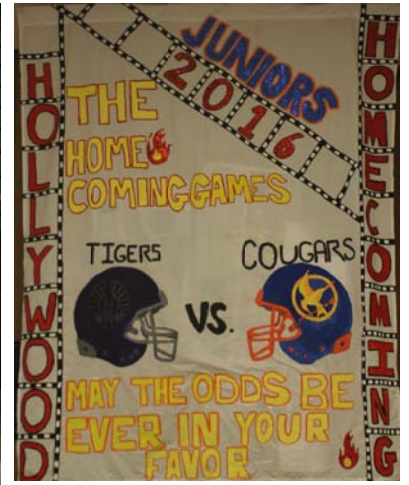 HOLLYWOOD
JUNIORS
2016
THE
HOME
COMING GAMES
TIGERS
COUGARS
VS.
MAY THE ODDS BE
EVER IN YOUR
FAVOR
HOMECOMING